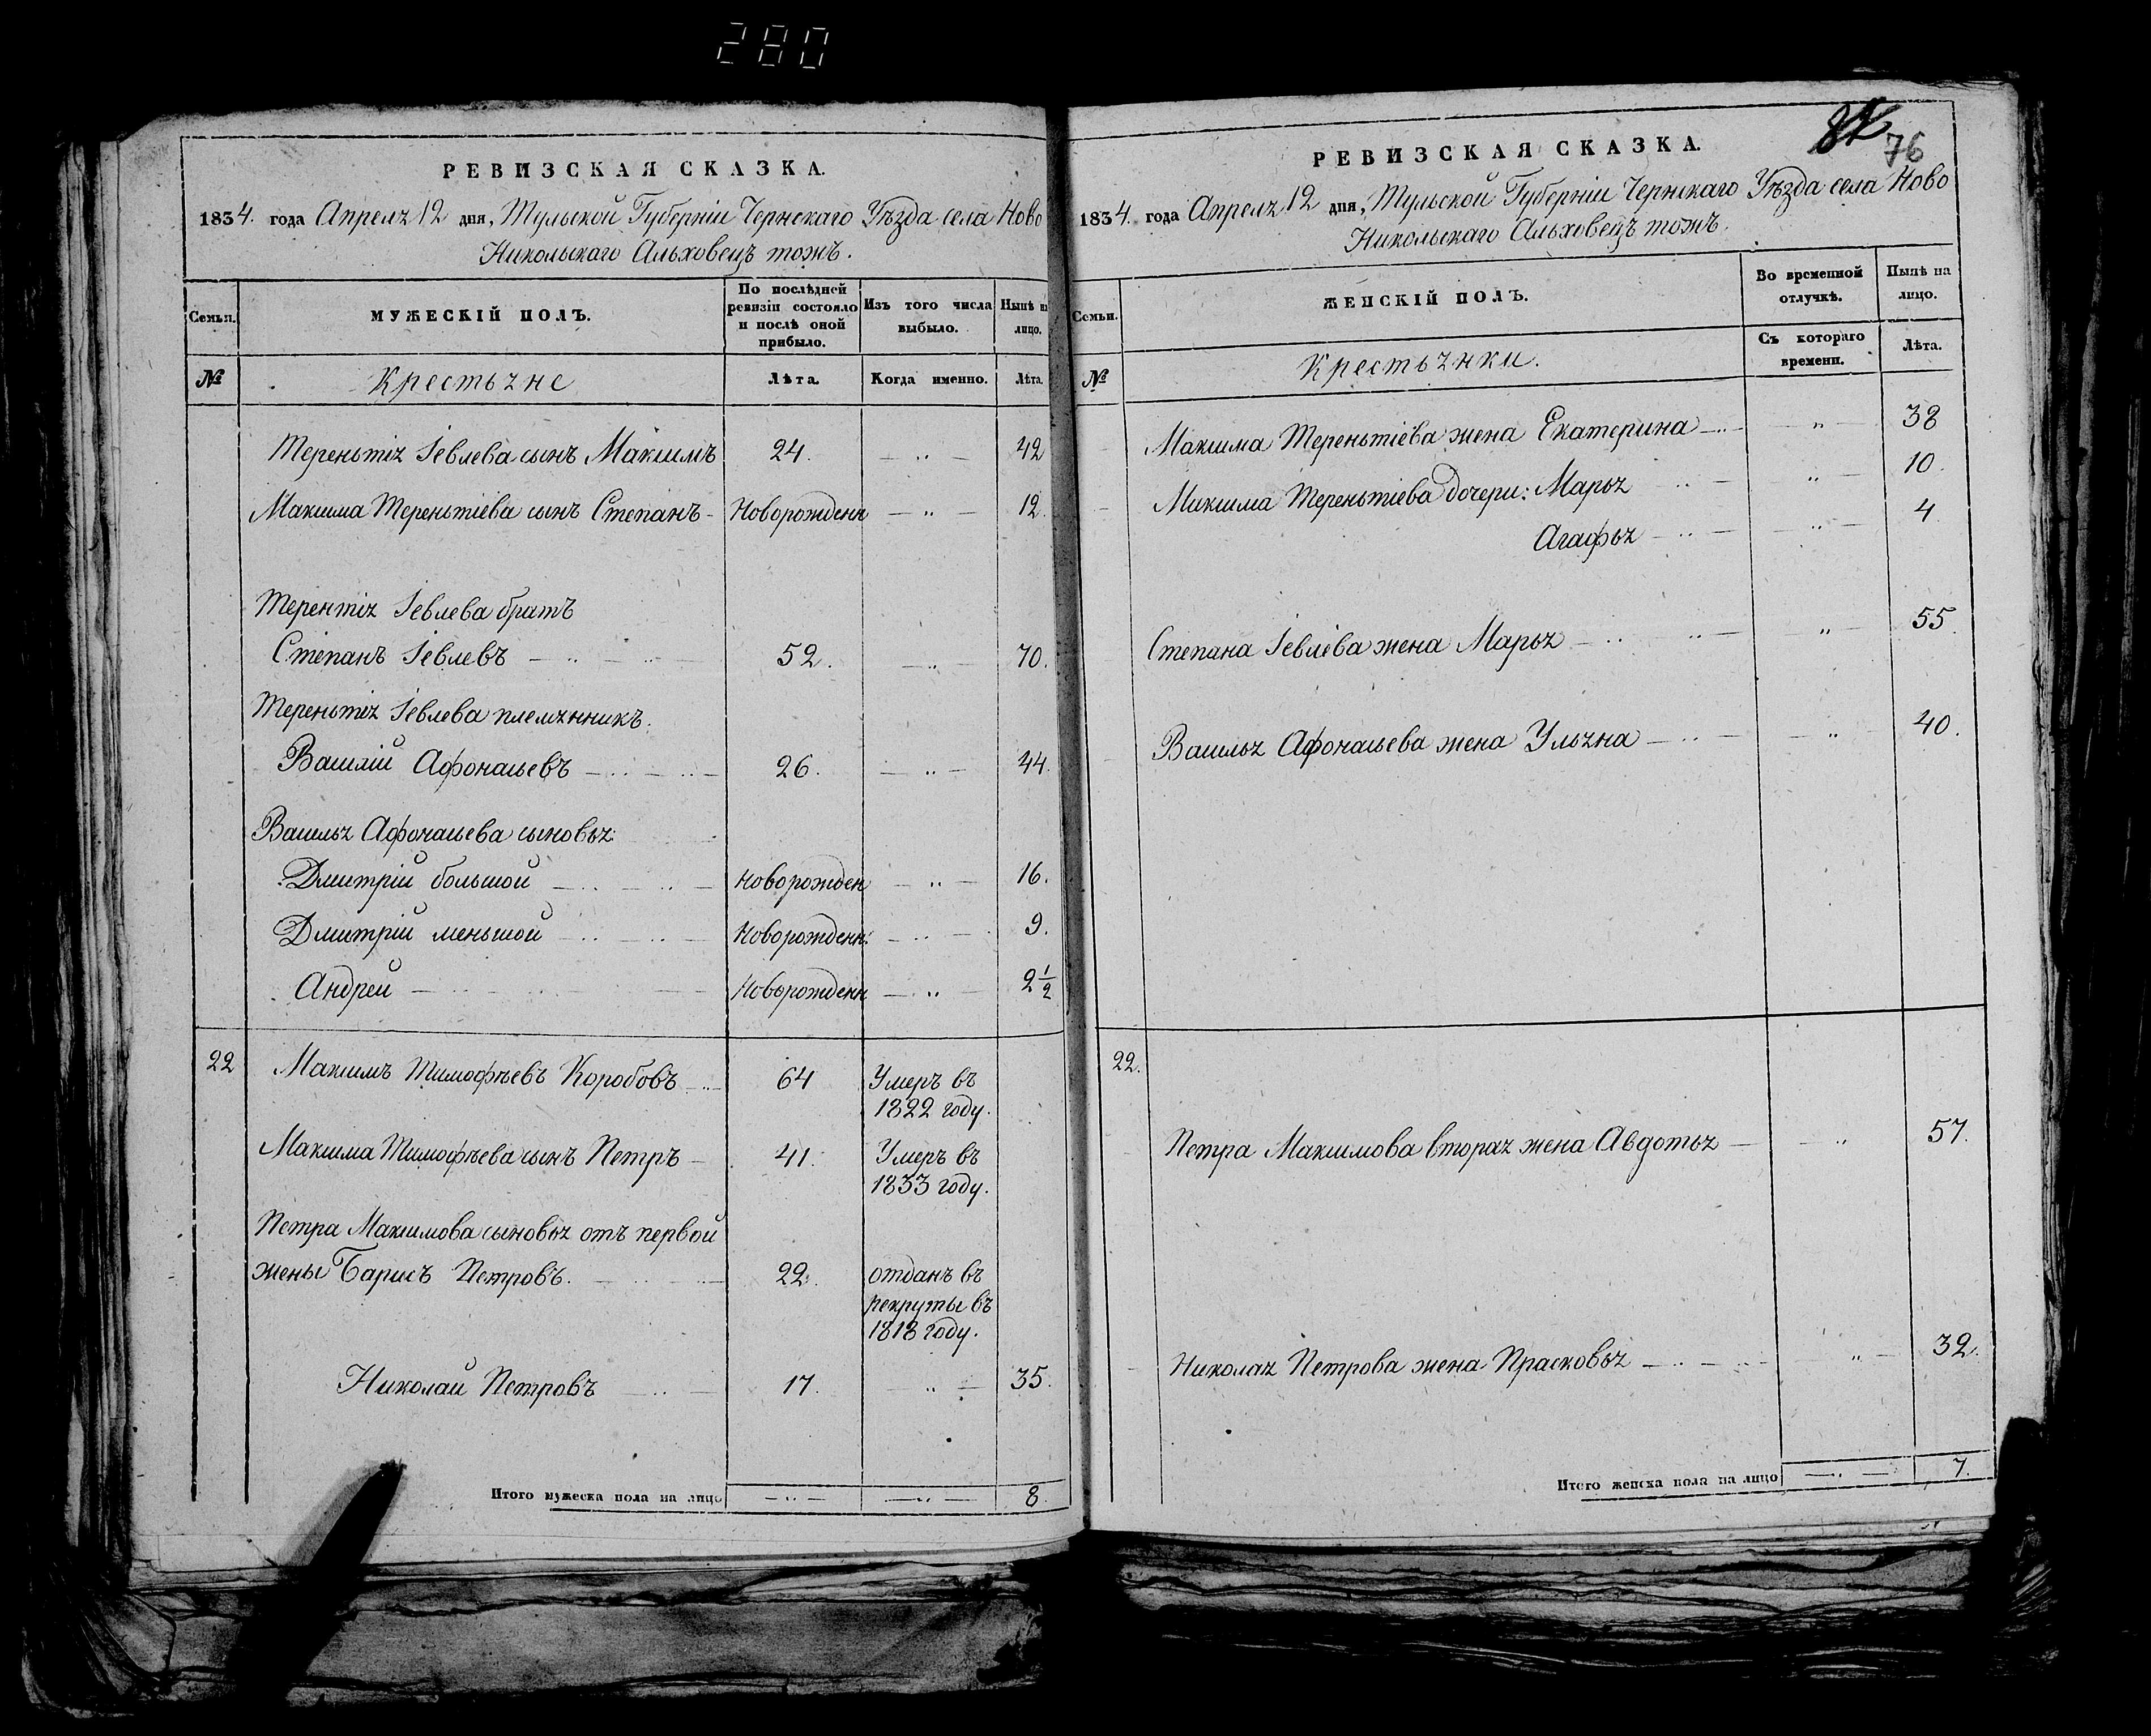 280
РЕВИЗСКАЯ СКАЗКА.
1834. года Апреля 12 дня, Тульской Губерніи Чернскаго Уѣзда села Ново
Никольскаго Альховецъ тожъ.
Семьи.
МУЖЕСКІЙ ПОЛЪ.
По послѣдней ревизіи состояло и послѣ оной прибыло.
Изъ того числа выбыло.
Нынѣ на лицо.
№
Крестьяне
Лѣта.
Когда именно.
Лѣта.
Терентія Іевлева сынъ Максимъ 24. 42
Максима Терентіева сынъ Степанъ Новорожденн 12.
Терентія Іевлева братъ
Степанъ Іевлевъ 52. 70.
Терентія Іевлева племянникъ.
Василій Афонасьевъ 26. 44.
Василья Афонасьева сыновья:
Дмитрій большой Новорожден 16.
Дмитрій меньшой Новорожденн: 9.
Андрей Новорожденн 2 1/2
22 Максимъ Тимофѣевъ Коробовъ 64 Умеръ въ
1822 году.
Максима Тимофѣева сынъ Петръ 41. Умеръ въ
1833 году.
Петра Максимова сыновья отъ первой
жены Барисъ Петровъ. 22. отданъ въ
рекруты въ
1818 году.
Николай Петровъ 17. 35.
Итого мужеска пола на лицо 8.
76
РЕВИЗСКАЯ СКАЗКА.
1834. года Апреля 12 дня, Тульской Губерніи Чернскаго Уѣзда села Ново
Никольскаго Альховецъ тожъ.
Семьи.
ЖЕНСКІЙ ПОЛЪ.
Во временной отлучкѣ.
Нынѣ на лицо.
№
Крестьянки.
Съ котораго времени.
Лѣта.
Максима Терентіева жена Екатерина 38
Максима Терентіева дочери: Марья 10.
Агафья 4.
Степана Іевлева жена Марья 55.
Василья Афонасьева жена Ульяна 40.
22.
Петра Максимова вторая жена Авдотья 57.
Николая Петрова жена Прасковья 32.
Итого женска пола на лицо 7.